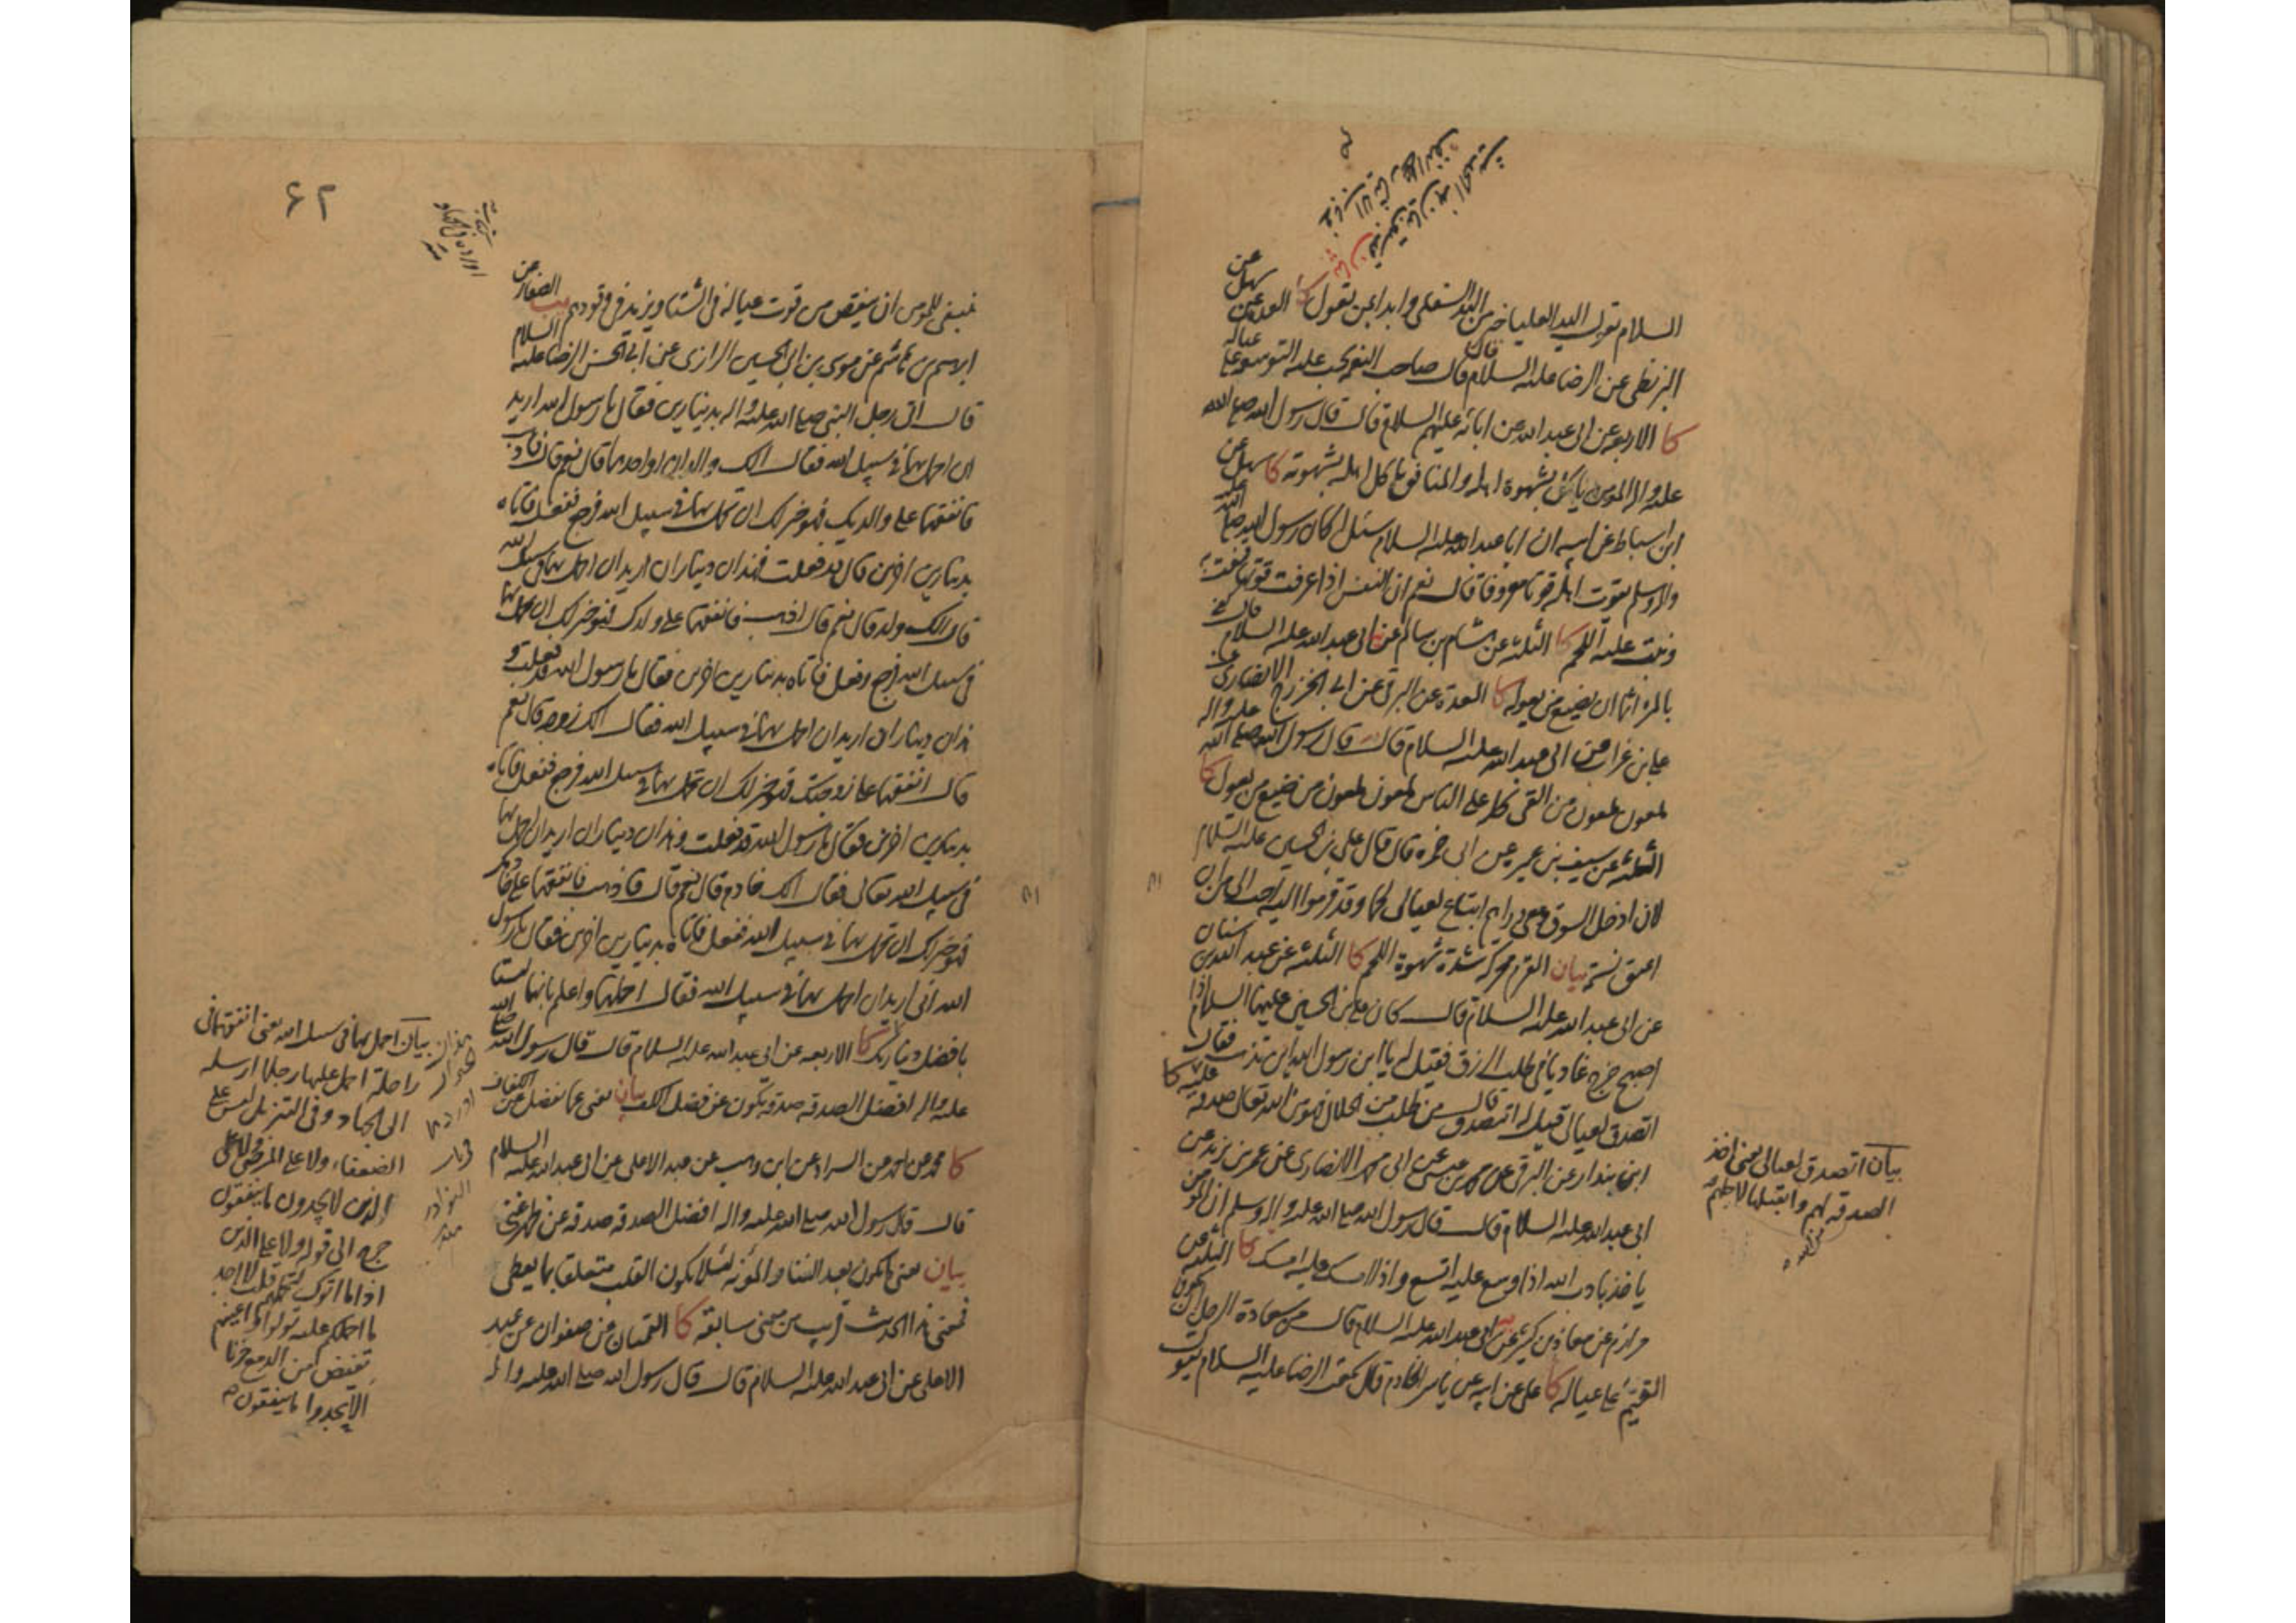 السلام يقول اليد العليا خير من اليد السفلى وابدا بمن تعول كا العدة عن سهل عن
البزنطي عن الرضا عليه السلام قال قال صاحب النعمة يجب عليه التوسعة على عياله
كا الاربعة عن ابي عبد الله عن ابائه عليهم السلام قال قال رسول الله صلى الله
عليه واله المومن ياكل بشهوة اهله والمنافق ياكل اهله بشهوته كا سهل عن
ابن اسباط عن ابيه ان ابا عبد الله عليه السلام سئل اكان رسول الله صلى الله عليه
واله وسلم يقوت اهله قوتا معروفا قال نعم ان النفس اذا عرفت قوتها قنعت به
ونبت عليه اللحم كا الثلثة عن هشام بن سالم عن ابي عبد الله عليه السلام قال كفى
بالمرء اثما ان يضيع من يعوله كا العدة عن البرقي عن ابي الخزرج الانصاري عن
علي بن غراب عن ابي عبد الله عليه السلام قال قال رسول الله صلى الله عليه واله
ملعون ملعون من القى كله على الناس ملعون ملعون من ضيع من يعول كا
الثلثة عن سيف بن عميرة عن ابي حمزة قال قال علي بن الحسين عليه السلام
لان ادخل السوق ومعي دراهم ابتاع لعيالي لحما وقد قرموا اليه احب الي من ان
اعتق نسمة بيان القرم محركة شدة شهوة اللحم كا الثلثة عن عبد الله بن سنان
عن ابي عبد الله عليه السلام قال كان علي بن الحسين عليهما السلام اذا
اصبح خرج غاديا في طلب الرزق فقيل له يا ابن رسول الله اين تذهب فقال
اتصدق لعيالي قيل له اتتصدق قال من طلب من الحلال فهو من الله تعالى صدقة عليه كا
ابن بندار عن البرقي عن محمد بن عيسى عن ابي محمد الانصاري عن عمر بن يزيد عن
ابي عبد الله عليه السلام قال قال رسول الله صلى الله عليه واله وسلم ان المومن
ياخذ بادب الله اذا وسع عليه اتسع واذا امسك عليه امسك كا الثلثة عن
مرازم عن معاذ بن كثير عن ابي عبد الله عليه السلام قال من سعادة الرجل ان يكون
القيم على عياله كا علي عن ابيه عن ياسر الخادم قال سمعت الرضا عليه السلام يقول
بيان اتصدق لعيالي يعني اخذ
الصدقة لهم واقبلها لاجلهم
٦٢
ينبغي للمومن ان ينقص من قوت عياله في الشتا ويزيد في وقودهم يب الصفار عن
ابرهيم بن هاشم عن موسى بن ابي الحسين الرازي عن ابي الحسن الرضا عليه السلام
قال اتى رجل النبي صلى الله عليه واله بدينارين فقال يا رسول الله اريد
ان احمل بهما في سبيل الله فقال الك والدان او احدهما قال نعم قال فاذهب
فانفقهما على والديك فهو خير لك ان تحمل بهما في سبيل الله فرجع ففعل فاتاه
بدينارين اخرين قال قد فعلت فهذان ديناران اريد ان احمل بهما في سبيل الله
قال الك ولد قال نعم قال اذهب فانفقهما على ولدك فهو خير لك ان تحمل بهما
في سبيل الله فرجع وفعل فاتاه بدينارين اخرين فقال يا رسول الله قد فعلت و
هذان ديناران اريد ان احمل بهما في سبيل الله فقال الك زوجة قال نعم
قال انفقهما على زوجتك فهو خير لك ان تحمل بهما في سبيل الله فرجع ففعل فاتاه
بدينارين اخرين فقال يا رسول الله قد فعلت وهذان ديناران اريد ان احمل بهما
في سبيل الله تعالى فقال الك خادم قال نعم قال فاذهب فانفقهما على خادمك
فهو خير لك ان تحمل بهما في سبيل الله ففعل فاتاه بدينارين اخرين فقال يا رسول
الله اني اريد ان احمل بهما في سبيل الله فقال احملهما واعلم بانهما ليستا
بافضل دينارك كا الاربعة عن ابي عبد الله عليه السلام قال قال رسول الله صلى الله
عليه واله افضل الصدقة صدقة تكون عن فضل الكف بيان يعني عما يفضل عن الكفاف
كا محمد عن احمد عن السراد عن ابن وهب عن عبد الاعلى عن ابي عبد الله عليه السلام
قال قال رسول الله صلى الله عليه واله افضل الصدقة صدقة عن ظهر غنى
بيان يعني ما يكون بعد الغنا والمؤنة لئلا يكون القلب متعلقا بما يعطى
فمعنى هذا الحديث قريب من معنى سابقه كا القميان عن صفوان عن عبد
الاعلى عن ابي عبد الله عليه السلام قال قال رسول الله صلى الله عليه واله
بيان احمل بهما في سبيل الله يعني انفقهما في
راحلة احمل عليها رجلا ارسله
الى الجهاد وفي التنزيل ليس على
الضعفاء ولا على المرضى ولا على
الذين لا يجدون ما ينفقون
حرج الى قوله ولا على الذين
اذا ما اتوك لتحملهم قلت لا اجد
ما احملكم عليه تولوا واعينهم
تفيض من الدمع حزنا
الا يجدوا ما ينفقون